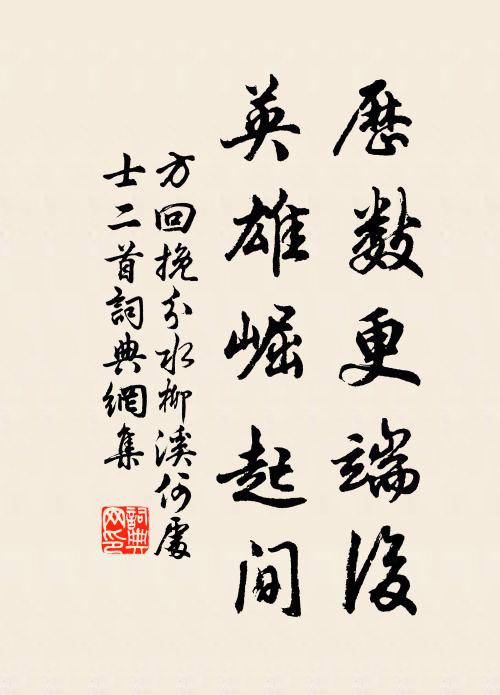 歷數更端後
英雄崛起間
方回挽分水柳溪何處
士二首詞典網集
詞典
网印